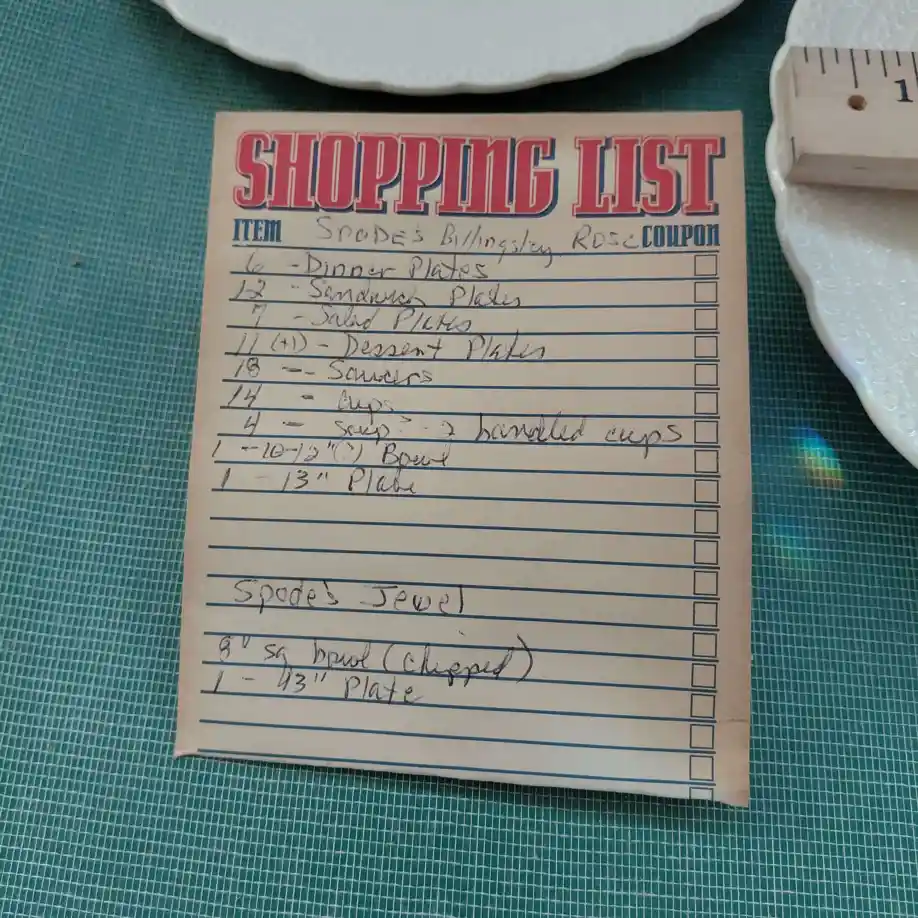 SHOPPING LIST
ITEM SPODE'S Billingsley ROSE COUPON
6 - Dinner Plates
12 - Sandwich Plates
7 - Salad Plates
11 (+1) - Dessert Plates
18 -- Saucers
14 - Cups
4 - soup - 2 handled cups
1 - 10-12" (?) Bowl
1 - 13" Plate
Spode's Jewel
8" sq bowl (chipped)
1 - 13" Plate
1